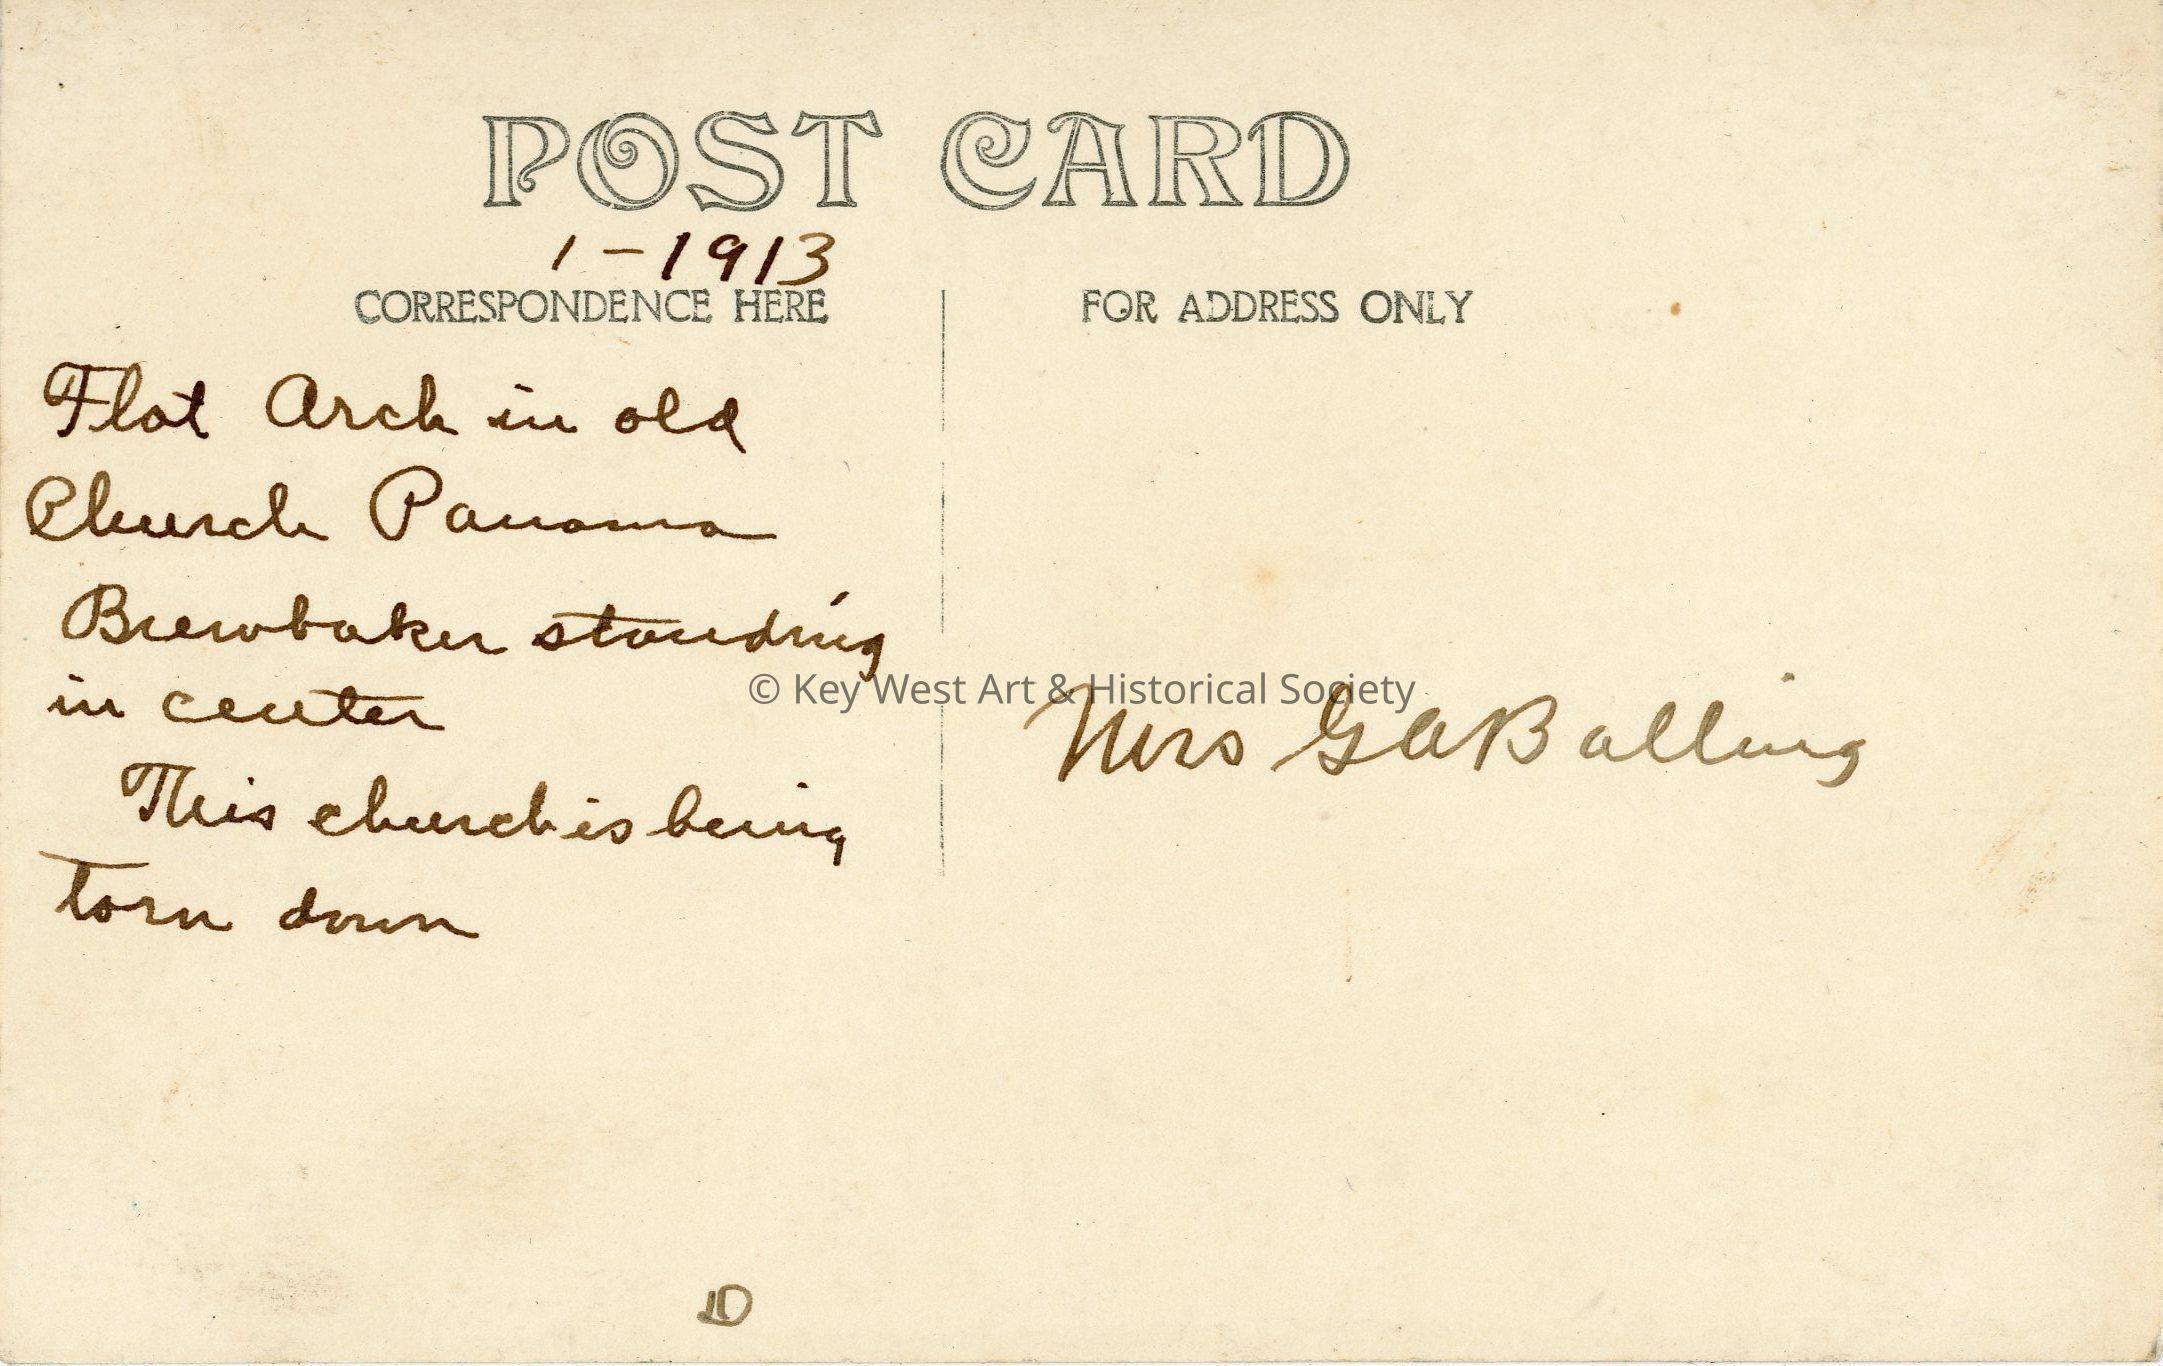 POST CARD
1-1913
CORRESPONDENCE HERE
FOR ADDRESS ONLY
Flat Arch in old
Church Panama
Brewbaker standing
in center
This church is being
torn down
© Key West Art & Historical Society
Mrs G A Balling